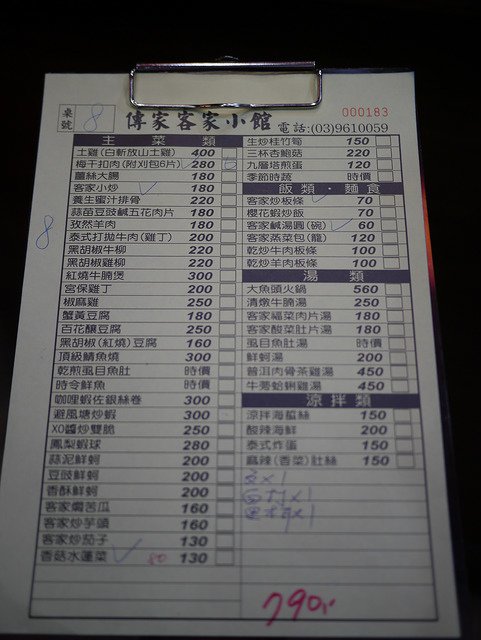 桌號 8
傳家客家小館
電話:(03)9610059
000183
主菜類
土雞(白斬放山土雞) 400
梅干扣肉(附刈包6片) 280
薑絲大腸 180
客家小炒 180
養生蜜汁排骨 220
蒜苗豆豉鹹五花肉片 180
孜然羊肉 180
泰式打拋牛肉(雞丁) 200
黑胡椒牛柳 220
黑胡椒雞柳 220
紅燒牛腩煲 300
宮保雞丁 200
椒麻雞 250
蟹黃豆腐 180
百花釀豆腐 250
黑胡椒(紅燒)豆腐 160
頂級鯖魚燒 300
乾煎虱目魚肚 時價
時令鮮魚 時價
咖哩蝦佐銀絲卷 300
避風塘炒蝦 300
XO醬炒雙脆 250
鳳梨蝦球 280
蒜泥鮮蚵 200
豆豉鮮蚵 200
香酥鮮蚵 200
客家燜苦瓜 160
客家炒芋頭 160
客家炒茄子 130
香菇水蓮菜 80 130
8
生炒桂竹筍 150
三杯杏鮑菇 220
九層塔煎蛋 120
季節時蔬 時價
飯類・麵食
客家炒粄條 70
櫻花蝦炒飯 70
客家鹹湯圓(碗) 60
客家蒸菜包(籠) 120
乾炒牛肉粄條 100
乾炒羊肉粄條 100
湯類
大魚頭火鍋 560
清燉牛腩湯 250
客家福菜肉片湯 180
客家酸菜肚片湯 180
虱目魚肚湯 時價
鮮蚵湯 200
普洱肉骨茶雞湯 450
牛蒡蛤蜊雞湯 450
涼拌類
涼拌海蜇絲 150
酸辣海鮮 200
泰式炸蛋 150
麻辣(香菜)肚絲 150
790.-